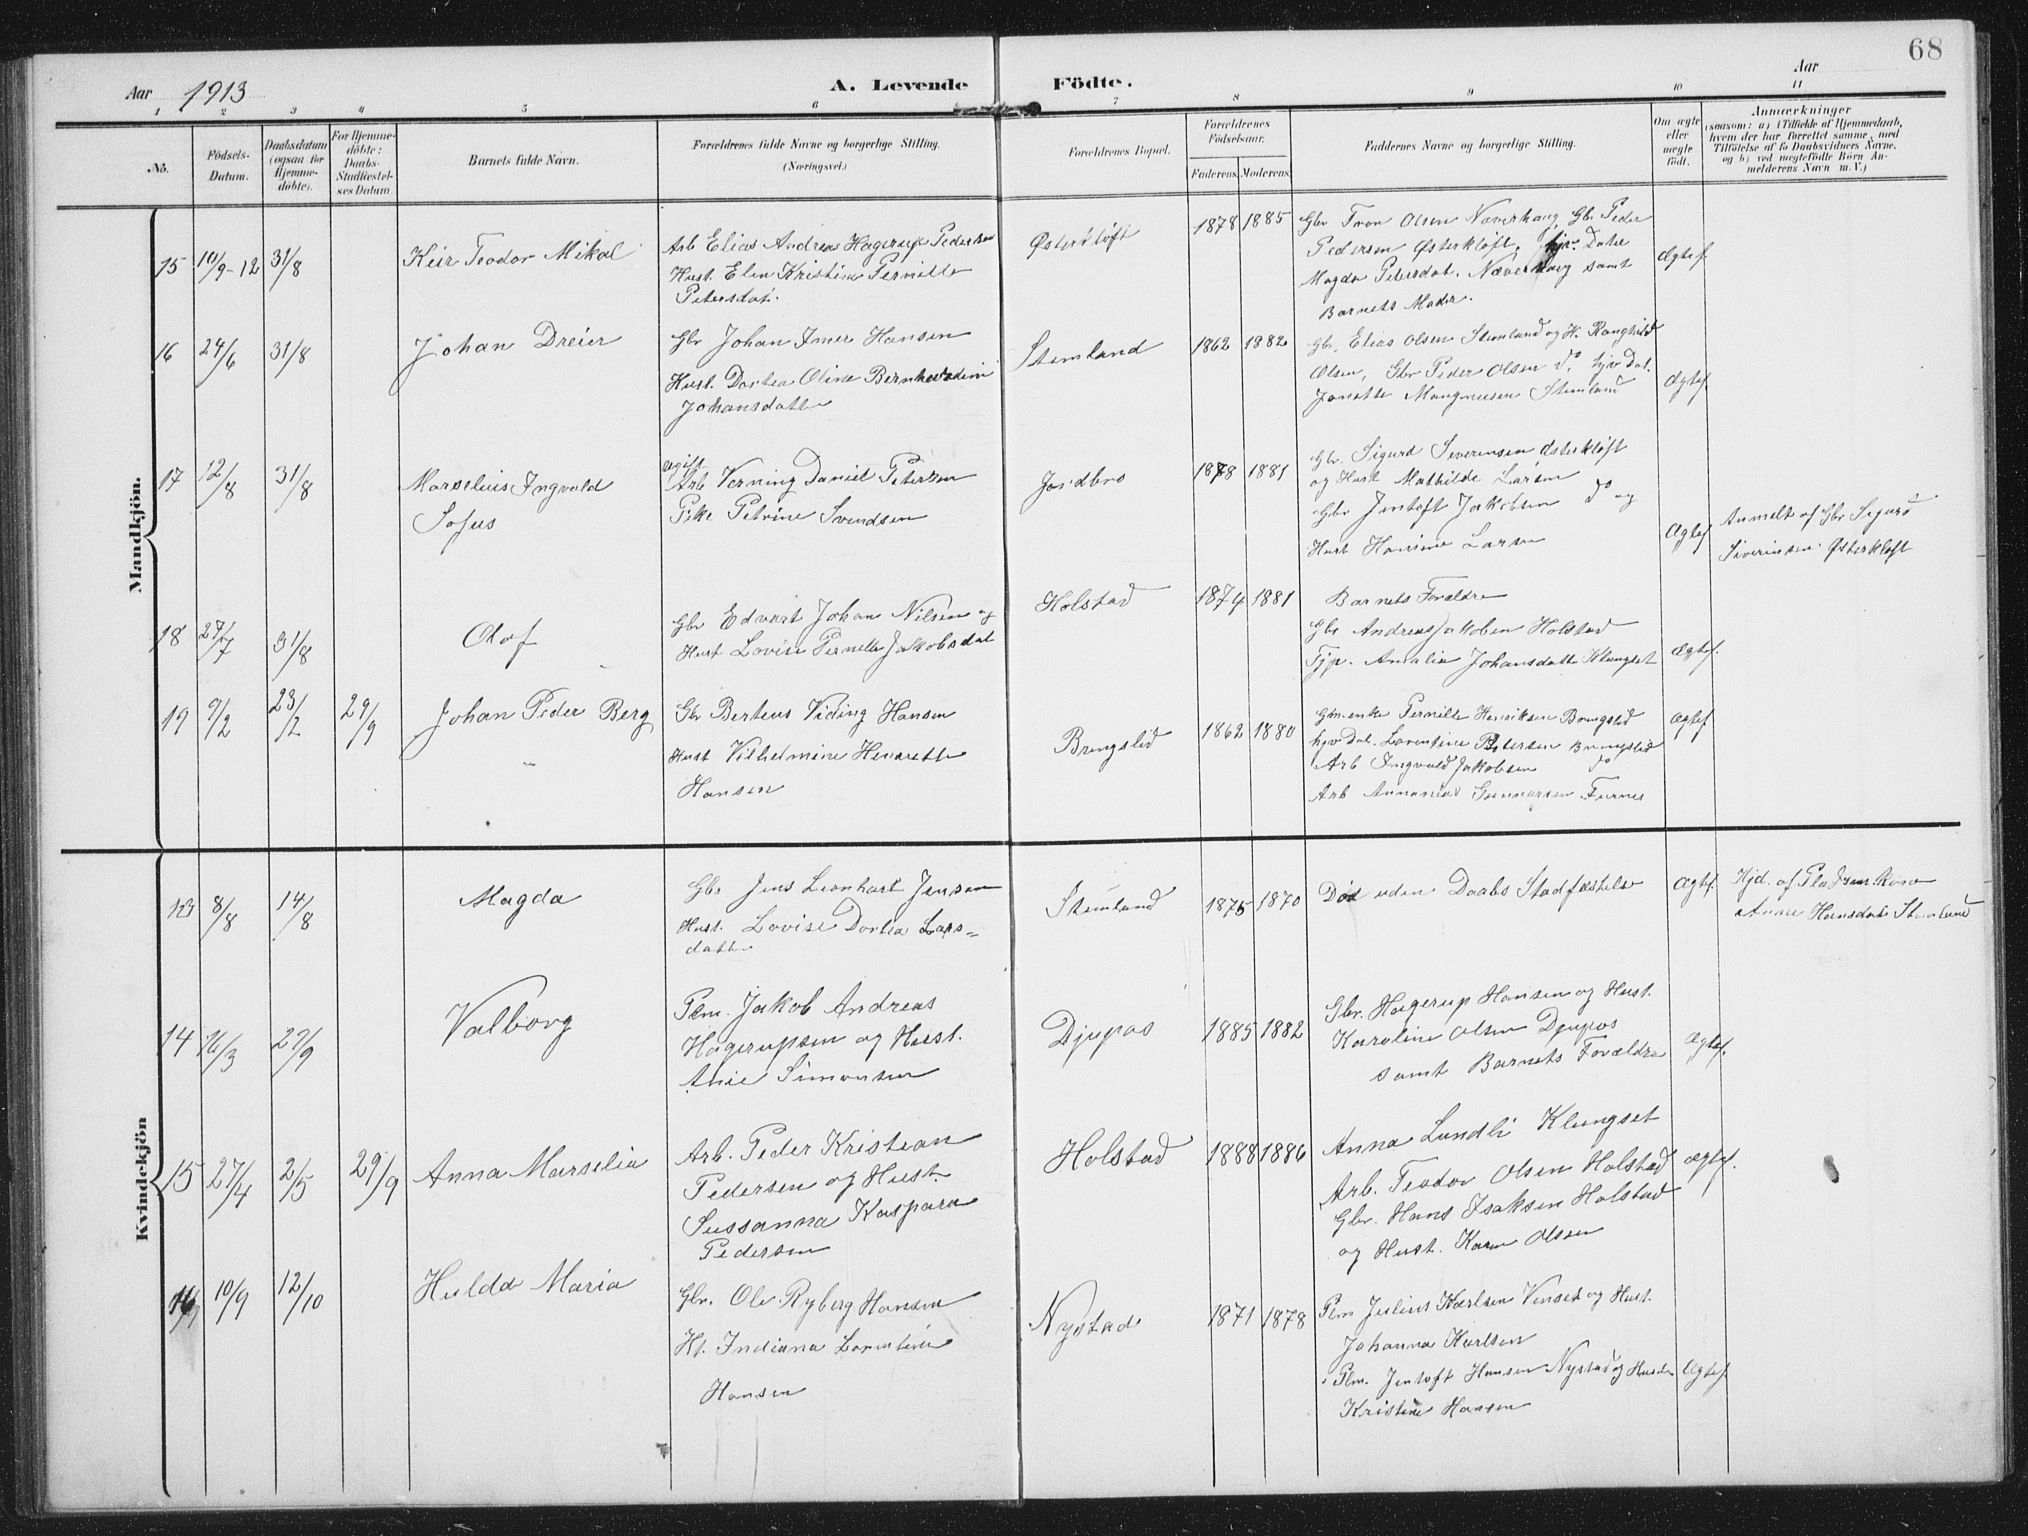 68
Aar 1913
A. Levende Födte.
Aar
1 2 3 4 5 6 7 8 9 10 11
No.
Födsels-Datum.
Daabsdatum (ogsaa for Hjemmedöbte).
For Hjemmedöbte: Daabs-Stadfæstelses Datum
Barnets fulde Navn.
Forældrenes fulde Navne og borgerlige Stilling. (Næringsvei.)
Forældrenes Bopæl.
Forældrenes Födselsaar.
Faderens. Moderens.
Faddernes Navne og borgerlige Stilling.
Om ægte eller uægte födt.
Anmærkninger
(saasom: a) i Tilfælde af Hjemmedaab,
hvem der har forrettet samme, med
Tilföielse af to Daabsvidners Navne,
og b) ved uægtefödte Börn Anmelderens Navn m.V.)
Mandkjön.
15 10/9-12 31/8
Keir Teodor Mikal
Arb Elias Andreas Hagerup Pedersen
Hust. Elen Kristine Pernille
Petersdat.
Østerkløft
1878 1885
Gbr Tron Olsen Næverhaug, Gbr Peder
Pedersen Østerkløft, Datter
Magda Petersdat. Næverhaug samt
Barnets Moder.
Ægtef.
16 24/6 31/8
Johan Dreier
Gbr Johan Imer Hansen
Hust. Dortea Oline Bernhardine
Johansdatter
Stemland
1862 1882
Gbr. Elias Olsen Stemland og H. Ranghild
Olsen, Gbr Peder Olsen do, hjv Dat.
Jonette Mangnusen Stemland
Ægtef.
17 12/8 31/8
Marselius Ingvald
Sofus
ugift
Arb Verning Daniel Petersen
Pike Petrine Svendsen
Jordbro
1878 1881
Gbr. Sigurd Severinsen Østerkløft
og Hust Mathilde Larsen
Gbr Jentoft Jakobsen do og
Hust Hansine Larsen
Ægtef
Anmelt af Gbr Sigurd
Siverinsen Østerkløft
18 27/7 31/8
Olaf
Gbr Edvart Johan Nilsen og
Hust Lovise Pernelle Jakobsdat
Holstad
1874 1881
Barnets Forældre
Gbr Andreas Jakobsen Holstad
Tjp. Amalia Johansdatter Klungset
Ægtef.
19 9/2 23/2 29/9
Johan Peder Berg
Gbr Berteus Viding Hansen
Hust Vilhelmine Henrette
Hansen
Bringslid
1862 1880
Gbr.enke Pernille Henriksen Bringslid
hjv Dat. Lorentine Petersen Bringslid
Arb Ingvald Jakobsen do
Arb Annanias Gunnarsen Furnes
Ægtef
Kvindekjön
13 8/8 14/8
Magda
Gbr Jens Leonhart Jensen
Hust. Lovise Dortea Lars=
datter
Stemland
1875 1870
Død uden Daabs Stadfæstelse
Ægtef.
Hjd. af kone
Anne Hansdat Stemland
14 16/3 29/9
Valborg
Plm. Jakob Andreas
Hagerupsen og Hust.
Anie Simonsen
Djupos
1885 1882
Gbr. Hagerup Hansen og Hust.
Karoline Olsen Djupos
samt Barnets Forældre
Ægtef.
15 27/4 2/5 29/9
Anna Marselia
Arb. Peder Kristian
Pedersen og Hust.
Sussanna Kaspara
Pedersen
Holstad
1888 1886
Anna Lundli Klungset
Arb. Teodor Olsen Holstad
Gbr. Hans Isaksen Holstad
og Hust. Karen Olsen
Ægtef.
16 10/9 12/10
Hulda Maria
Gbr. Ole Ryberg Hansen
Ht. Indiana Lorentine
Hansen
Nystad
1871 1878
Plm Julius Karlsen Venset og Hust.
Johanna Karlsen
Plm. Jentoft Hansen Nystad og
Kristine Hansen
Ægtef.